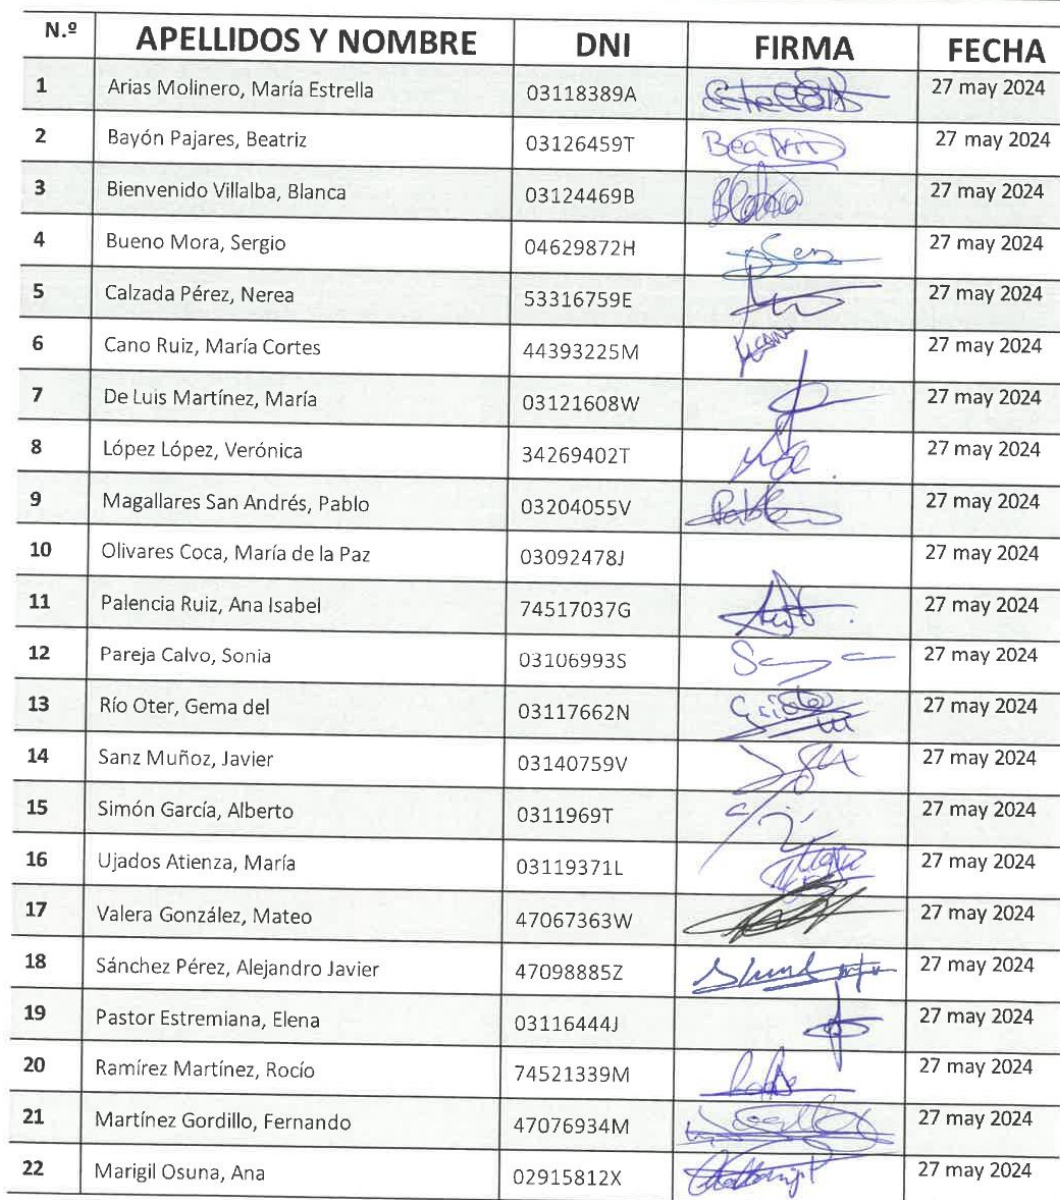 N.º APELLIDOS Y NOMBRE DNI FIRMA FECHA
1 Arias Molinero, María Estrella 03118389A 27 may 2024
2 Bayón Pajares, Beatriz 03126459T Beatriz 27 may 2024
3 Bienvenido Villalba, Blanca 03124469B Blanca 27 may 2024
4 Bueno Mora, Sergio 04629872H 27 may 2024
5 Calzada Pérez, Nerea 53316759E 27 may 2024
6 Cano Ruiz, María Cortes 44393225M 27 may 2024
7 De Luis Martínez, María 03121608W 27 may 2024
8 López López, Verónica 34269402T 27 may 2024
9 Magallares San Andrés, Pablo 03204055V Pablo 27 may 2024
10 Olivares Coca, María de la Paz 03092478J 27 may 2024
11 Palencia Ruiz, Ana Isabel 74517037G 27 may 2024
12 Pareja Calvo, Sonia 03106993S 27 may 2024
13 Río Oter, Gema del 03117662N 27 may 2024
14 Sanz Muñoz, Javier 03140759V 27 may 2024
15 Simón García, Alberto 0311969T 27 may 2024
16 Ujados Atienza, María 03119371L 27 may 2024
17 Valera González, Mateo 47067363W 27 may 2024
18 Sánchez Pérez, Alejandro Javier 47098885Z 27 may 2024
19 Pastor Estremiana, Elena 03116444J 27 may 2024
20 Ramírez Martínez, Rocío 74521339M 27 may 2024
21 Martínez Gordillo, Fernando 47076934M 27 may 2024
22 Marigil Osuna, Ana 02915812X 27 may 2024